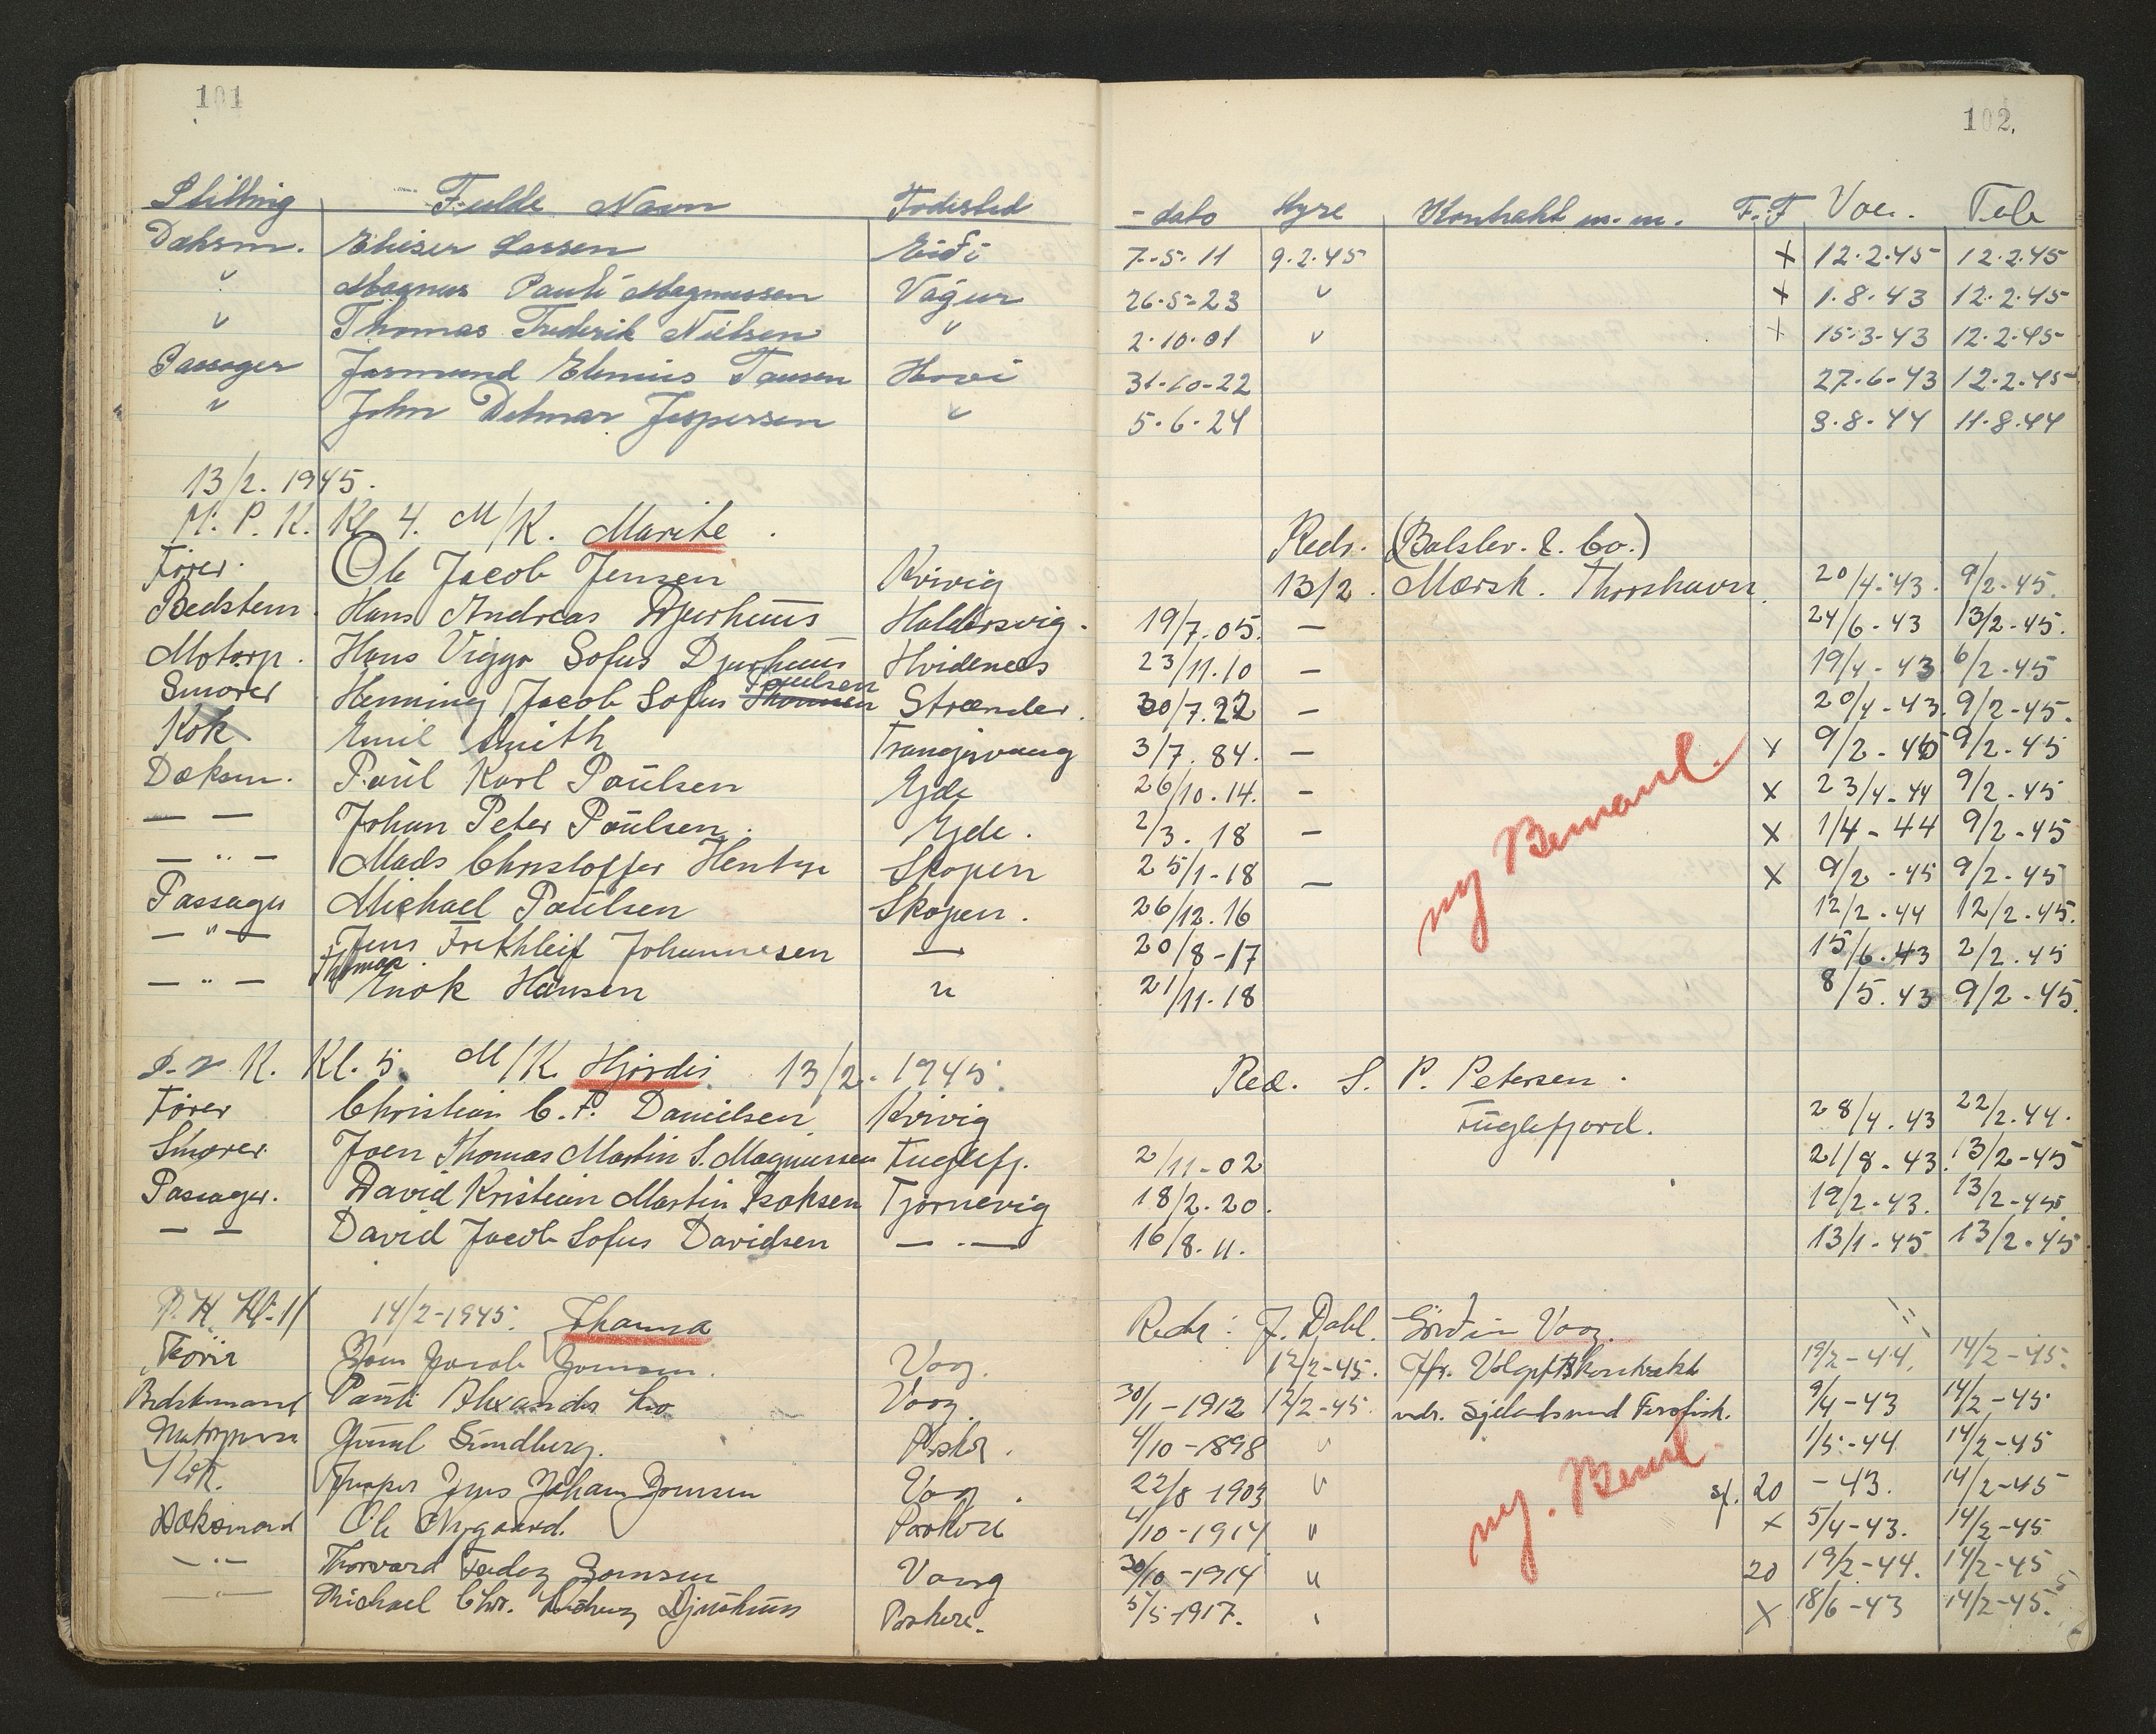 101
102.
Stilling Fulde Navn Fødested - dato Hyre Kontrakt m. m. F.F Vac. Tub
Dæksm. Elieser Larsen Eidi 7-5-11 9.2.45 x 12.2.45 12.2.45
" Magnus Pauli Magnussen Vágur 26-5-23 " x 1.8.43 12.2.45
" Thomas Frederik Nielsen " 2.10.01 " x 15-3-43 12.2.45
Passager Jasmund Elenius Tausen Hovi 31-10-22 27-6-43 12.2.45
" John Detmar Jespersen " 5.6.24 9.8.44 11.8.44
13/2. 1945.
M. P. K. Kl 4. M/K. Marite. Redr. (Balslev. & Co.)
Fører. Ole Jacob Jensen Kvivig 13/2. Mærsk. Thorshavn. 20/4-43. 9/2-45.
Bedstem. Hans Andreas Djurhuus Haldersvig. 19/7.05. — 24/6-43 13/2-45.
Motorp. Hans Viggo Sofus Djurhuus Hvidenæs 23/11.10 — 19/4-43 6/2-45
Smører Henning Jacob Sofus Poulsen Strænder. 30/7.22 — 20/4-43. 9/2-45.
Kok Emil Smith Trangisvaag 3/7.84. — x 9/2-45 9/2-45
Dæksm. Poul Karl Poulsen Ejde 26/10.14. — x 23/4-44 9/2-45
— — Johan Peter Poulsen. Ejde. 2/3.18 — x 1/4-44 9/2-45
— " — Mads Christoffer Hentze Skopen 25/1-18 — x 9/2-45 9/2-45
ny Bemand.
Passager Michael Poulsen Skopen. 26/12.16 12/2.44 12/2-45.
— " — Jens Frithleif Johannesen — 20/8-17 15/6.43 2/2.45
— " — Thomas Enok Hansen " 21/11.18 8/5.43 9/2-45.
K. Kl. 5. M/K. Hjørdis. 13/2. 1945. Red. S. P. Petersen.
Fører Christian C. F. Danielsen Kvivig Fuglefjord. 28/4.43 22/2.44.
Smører. Joen Thomas Martin S. Magnussen Fuglefj. 2/11-02 21/8-43. 13/2-45
Passager. David Kristian Martin Isaksen Tjørnevig 18/2.20. 19/2-43. 13/2-45
— — David Jacob Sofus Davidsen — . — 16/8.11. 13/1-45 13/2.45
P. K. Kl-11 14/2-1945. Johanna Redr: J. Dahl. Vaag.
Förer Jacob Vaag. 12/2-45. Jfr. kontrakt 19/2-44. 14/2-45.
Bedstemand Pauli Alexander Vaag 30/1-1912 12/2-45. mdr. 9/4-43 14/2-45.
Sundberg. 4/10-1898 " 1/5-44 14/2-45
Kok. Jesper Jens Johan Vaag. 22/8 1903 " sf. 20 -43. 14/2-45
ny. Bem.
Dæksmand Ole Porkere 4/10-1914 " x 5/4-43. 14/2-45
— " — Thorvard Vaag 30/10-1914 " 20 19/2-44. 14/2-45
— " — Michael Chr. Djurhuus Porkere. 5/5-1917. x 18/6-43 14/2-45.